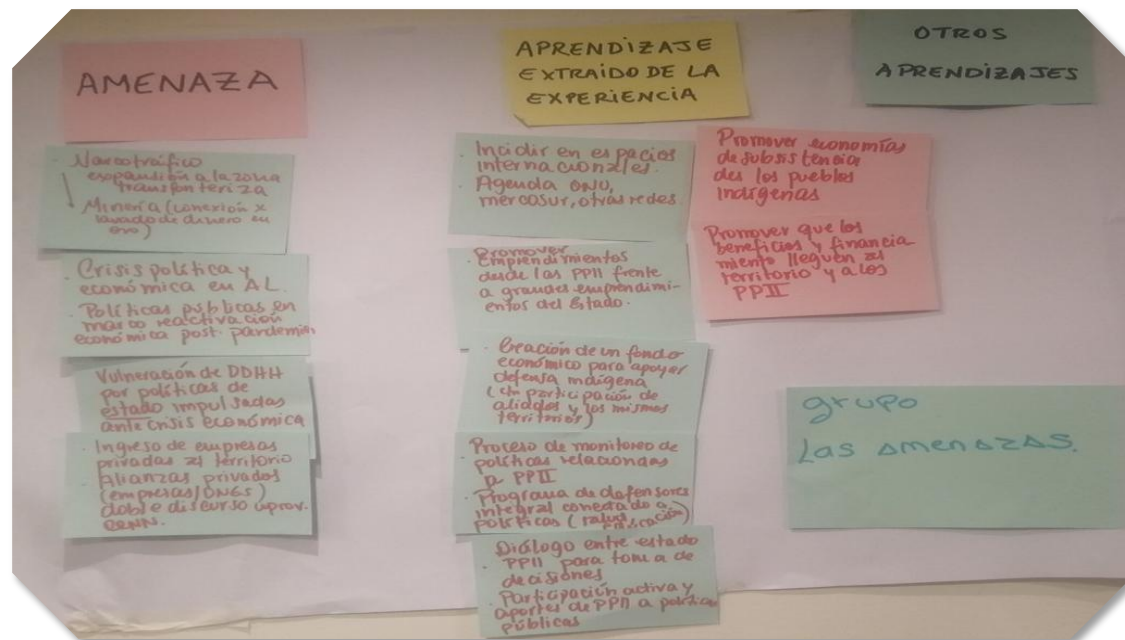 AMENAZA
· Narcotráfico
expansión a la zona
transfonteriza
Minería (conexión x
lavado de dinero en
oro)
· Crisis política y
económica en AL.
· Políticas públicas en
marco reactivación
económica post. pandemia
· Vulneración de DDHH
por políticas de
estado impulsadas
ante crisis económica
· Ingreso de empresas
privadas al territorio
· Alianzas privados
(empresas/ONGS)
doble discurso aprov.
RRNN.
APRENDIZAJE
EXTRAIDO DE LA
EXPERIENCIA
· Incidir en espacios
internacionales.
· Agenda ONU,
mercosur, otras redes
Promover
· Emprendimientos
desde las PPII frente
a grandes emprendimi-
entos del Estado.
· Creación de un fondo
económico para apoyar
defensa indígena
(con participación de
aliados y los mismos
territorios)
· Proceso de monitoreo de
políticas relaciondas
a PPII
· Programa de defensores
integral conectado a
políticas (salud,
educación)
· Diálogo entre estado
PPII para toma de
decisiones
· Participación activa y
aportes de PPII a políticas
públicas
OTROS
APRENDIZAJES
Promover economías
de subsistencia
des los pueblos
indígenas
Promover que los
beneficios y financia
miento lleguen al
territorio y a los
PPII
grupo
Las AMENAZAS.